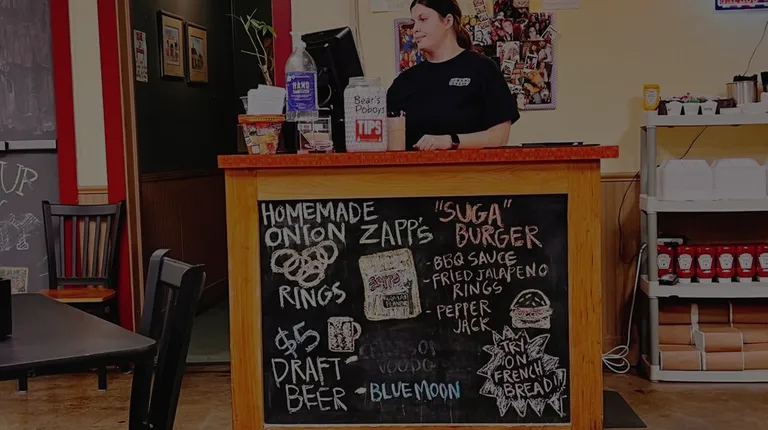 HAND
Bear's
Poboys
TIPS
UP
HOMEMADE
ONION
RINGS
ZAPP'S
ZAPP'S
"SUGA"
BURGER
- BBQ SAUCE
- FRIED JALAPENO
RINGS
- PEPPER
JACK
TRY
ON
FRENCH
BREAD!
$5
DRAFT
BEER
VOODOO
- BLUE MOON